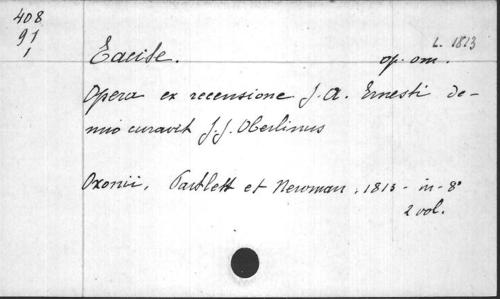 408
91
1
L. 1813
Tacite.
op. om.
Opera ex recensione J. A. Ernesti de-
nuo curavit J. J. Oberlinus
Oxonii, Bartlett et Newman, 1813 - in-8°
2 vol.